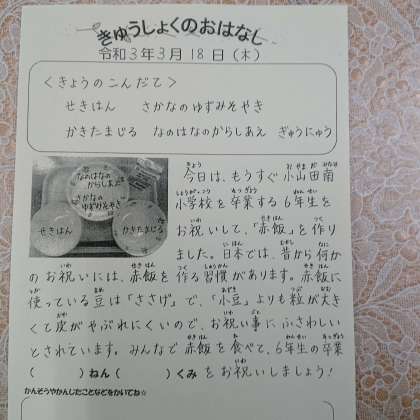 きゅうしょくのおはなし
令和3年3月18日(木)
<きょうのこんだて>
せきはん　さかなのゆずみそやき
かきたまじる　なのはなのからしあえ　ぎゅうにゅう
なのはなの
からしあえ
さかなの
ゆずみそやき
せきはん
かきたまじる
今日は、もうすぐ小山田南
小学校を卒業する6年生を
お祝いして、「赤飯」を作り
ました。日本では、昔から何か
のお祝いには、赤飯を作る習慣があります。赤飯に
使っている豆は「ささげ」で、「小豆」よりも粒が大き
くて皮がやぶれにくいので、お祝い事にふさわしい
とされています。みんなで赤飯を食べて、6年生の卒業
をお祝いしましょう!
(　　)ねん(　　)くみ
かんそうやかんじたことなどをかいてね☆